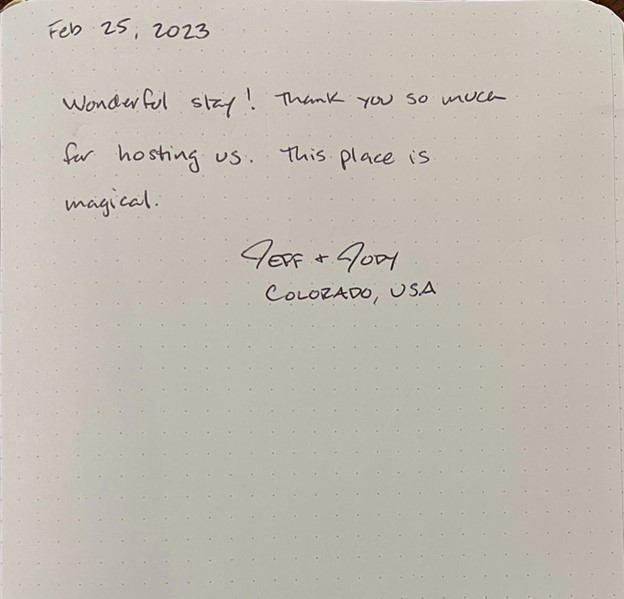 Feb 25, 2023
Wonderful stay! Thank you so much
for hosting us. This place is
magical.
JEFF + JODY
COLORADO, USA